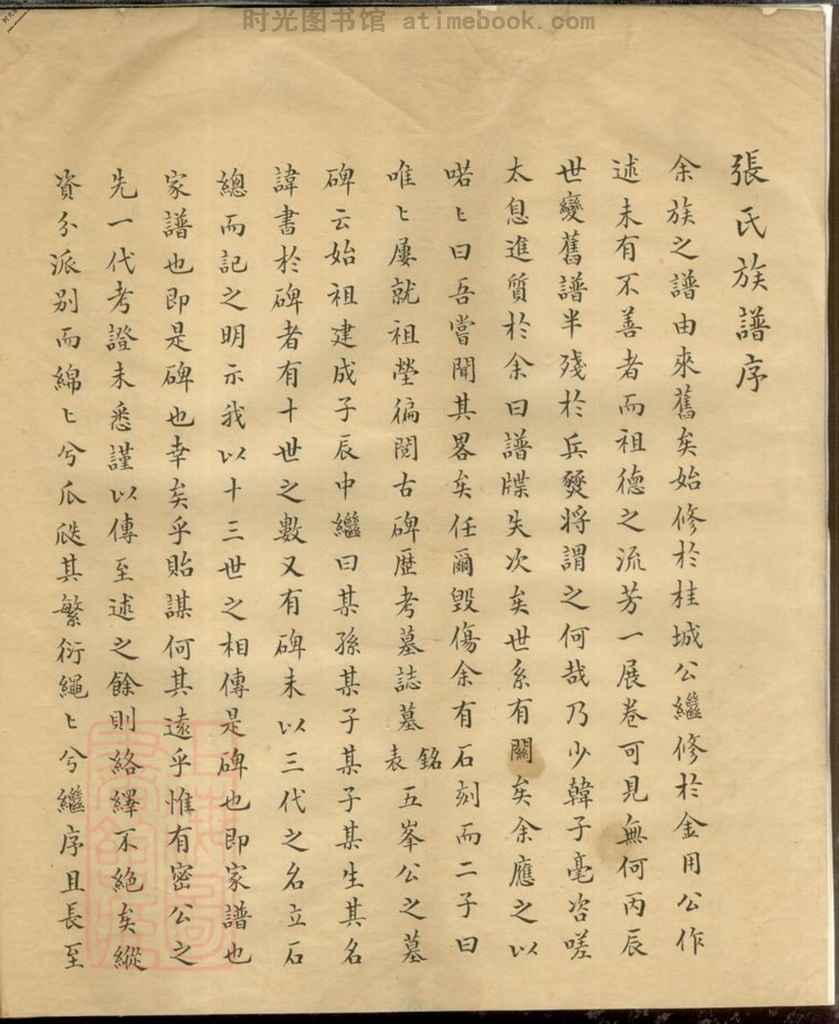 时光图书馆 atimebook.com
張氏族譜序
余族之譜由來舊矣始修於桂城公繼修於金用公作
述未有不善者而祖德之流芳一展卷可見無何丙辰
世變舊譜半殘於兵燹將謂之何哉乃少韓子毫咨嗟
太息進質於余曰譜牒失次矣世系有關矣余應之以
喏〻曰吾嘗聞其畧矣任爾毀傷余有石刻而二子曰
唯〻屢就祖塋徧閱古碑歷考墓誌墓銘表五峯公之墓
碑云始祖建成子辰中繼曰某孫某子某子某生其名
諱書於碑者有十世之數又有碑未以三代之名立石
總而記之明示我以十三世之相傳是碑也即家譜也
家譜也即是碑也幸矣乎貽謀何其遠乎惟有密公之
先一代考證未悉謹以傳至述之餘則絡繹不絶矣縱
資分派别而綿〻兮瓜瓞其繁衍繩〻兮繼序且長至